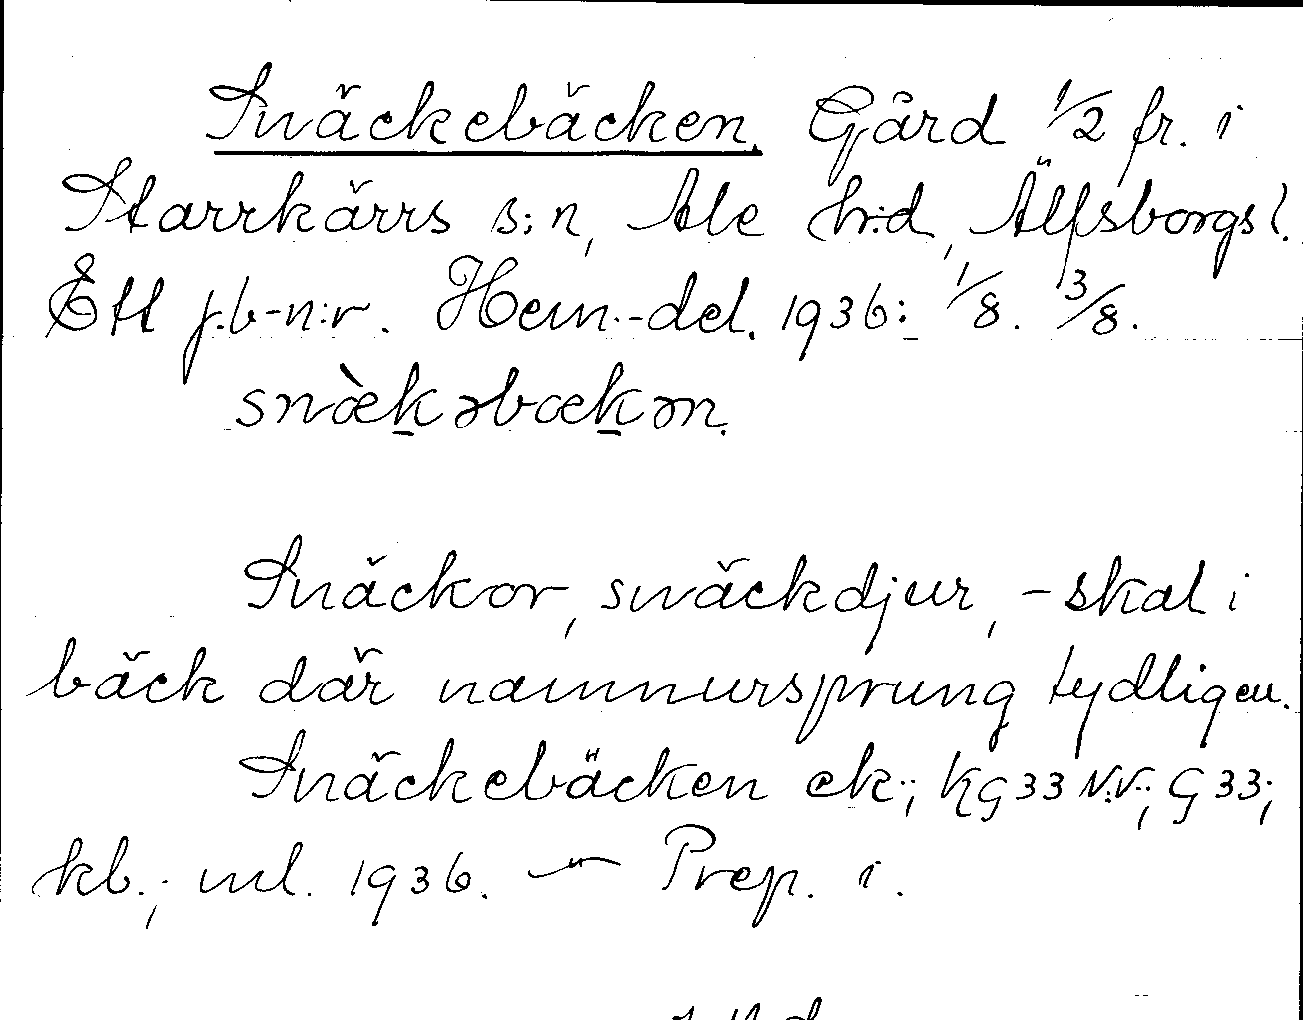 Snäckebäcken. Gård 1/2 fr. i
Starrkärrs s:n, Ale hrd, Älfsborgs l.
Ett j.b-n:r. Hem.-del. 1936: 1/8. 3/8.
snæ̀kəbækən.
Snäckor, snäckdjur, -skal i
bäck där namnursprung tydligen.
Snäckebäcken ek.; KG33 N.V.; G33;
kb.; ml. 1936. — " — Prep. i.